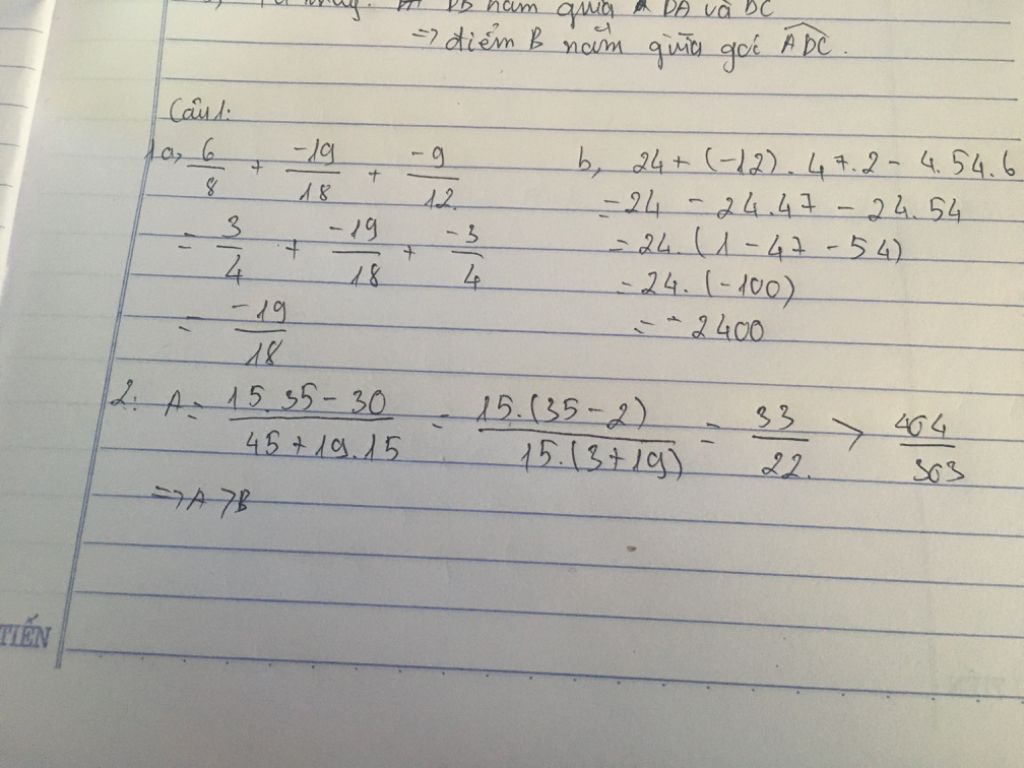 DB nằm giữa DA và DC
=> điểm B nằm giữa gó́c \widehat{ADC}.
Câu 1:
1a, \frac{6}{8} + \frac{-19}{18} + \frac{-9}{12}
= \frac{3}{4} + \frac{-19}{18} + \frac{-3}{4}
= \frac{-19}{18}
b, 24 + (-12). 47.2 - 4.54.6
= 24 - 24.47 - 24.54
= 24. (1 - 47 - 54)
= 24. (-100)
= -2400
2. A = \frac{15.35 - 30}{45 + 19.15} = \frac{15.(35 - 2)}{15.(3 + 19)} = \frac{33}{22.} > \frac{464}{303}
=> A > B
TIẾN